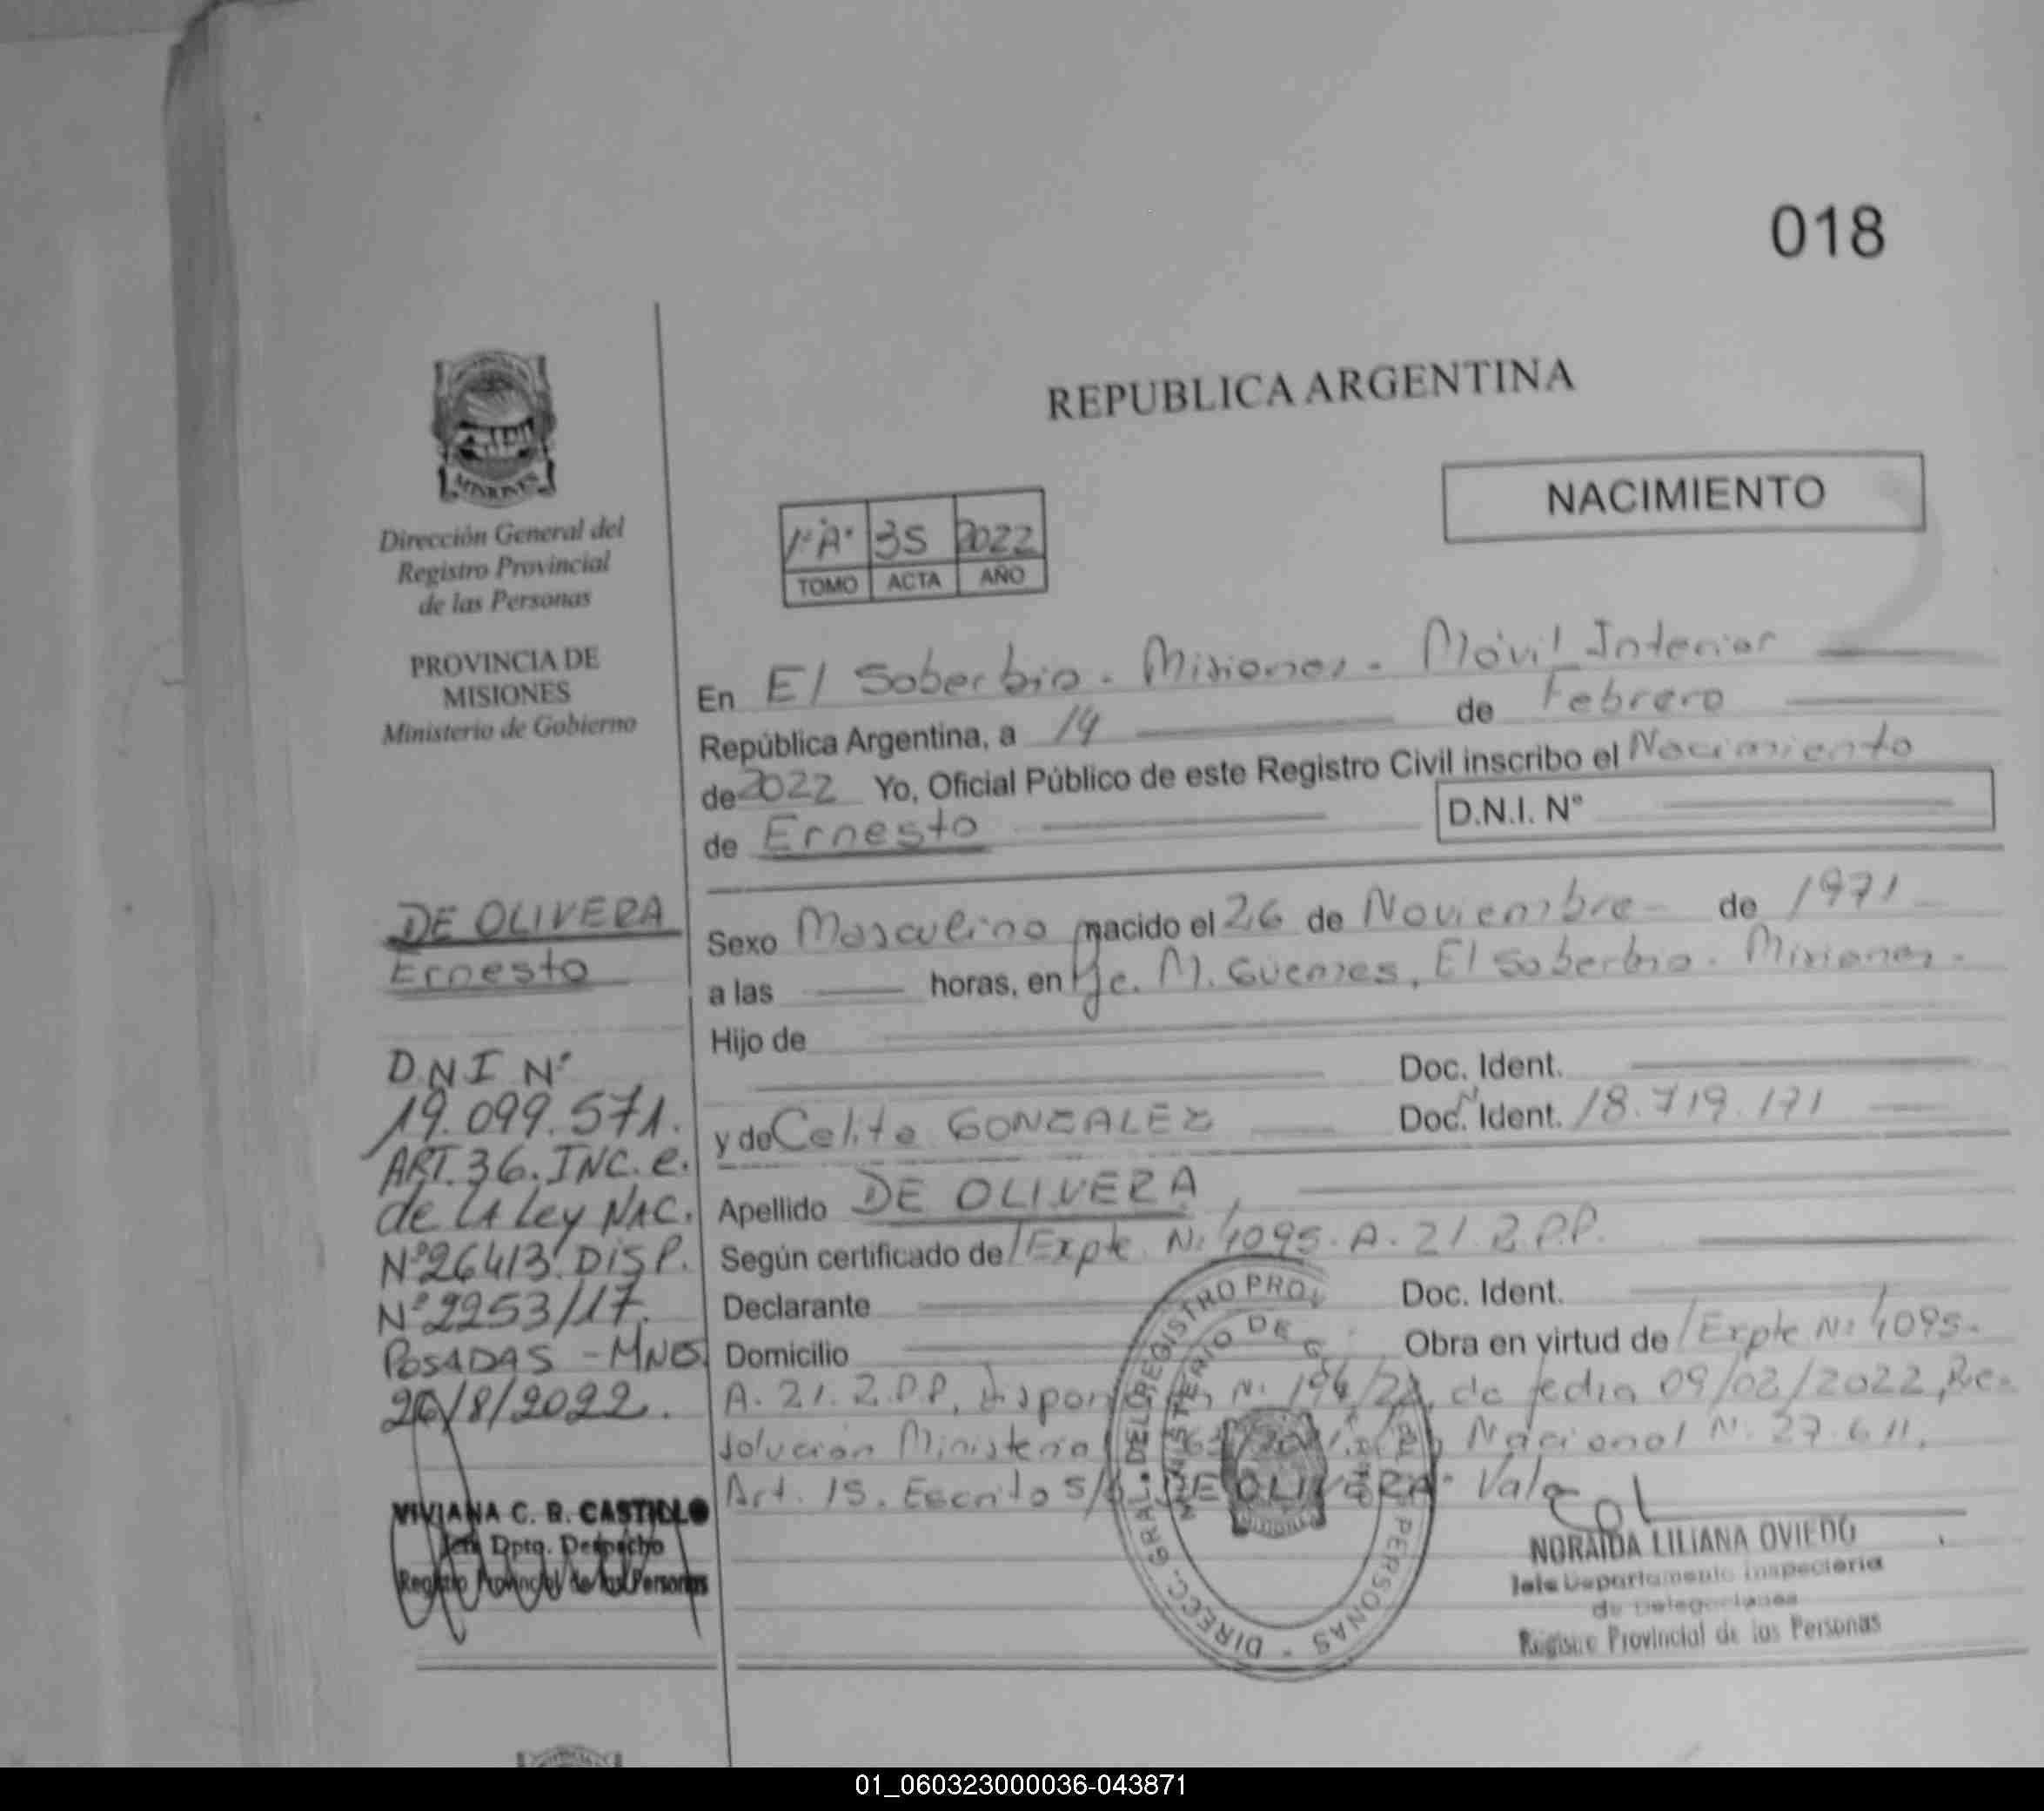 018
REPUBLICA ARGENTINA
NACIMIENTO
MISIONES
Dirección General del
Registro Provincial
de las Personas
PROVINCIA DE
MISIONES
Ministerio de Gobierno
1°"A" 35 2022
TOMO ACTA AÑO
En El Soberbio. Misiones. Móvil Interior
República Argentina, a 14 de Febrero
de 2022 Yo, Oficial Público de este Registro Civil inscribo el Nacimiento
de Ernesto D.N.I. N°
Sexo Masculino nacido el 26 de Noviembre de 1971
a las horas, en Pje. M. Guemes, El Soberbio. Misiones.
Hijo de
Doc. Ident.
y de Celita GONZALEZ Doc. Ident. N° 18.719.171
Apellido DE OLIVERA
Según certificado de Expte N° 4095. A. 21. R.P.P.
Declarante Doc. Ident.
Domicilio Obra en virtud de Expte N° 4095.
A. 21. R.P.P. N° de fecha 09/02/2022, Re=
solución Nacional N° 27.611,
Art. 15. Escrito s/ DE OLIVERA. Vale
DE OLIVERA
Ernesto
DNI N°
19.099.571.
ART. 36. INC. e.
de LA Ley NAC.
N°26413. DISP.
N°2253/17.
POSADAS - MNES
26/8/2022.
VIVIANA C. R. CASTILLO
Jefa Dpto. Despacho
Registro Provincial de las Personas
DIRECC. GRAL. DEL REGISTRO PROV. PERSONAS
MINISTERIO DE G
NORAIDA LILIANA OVIEDO
Jefe Departamento Inspectoria
de Delegaciones
Registro Provincial de las Personas
01_060323000036-043871